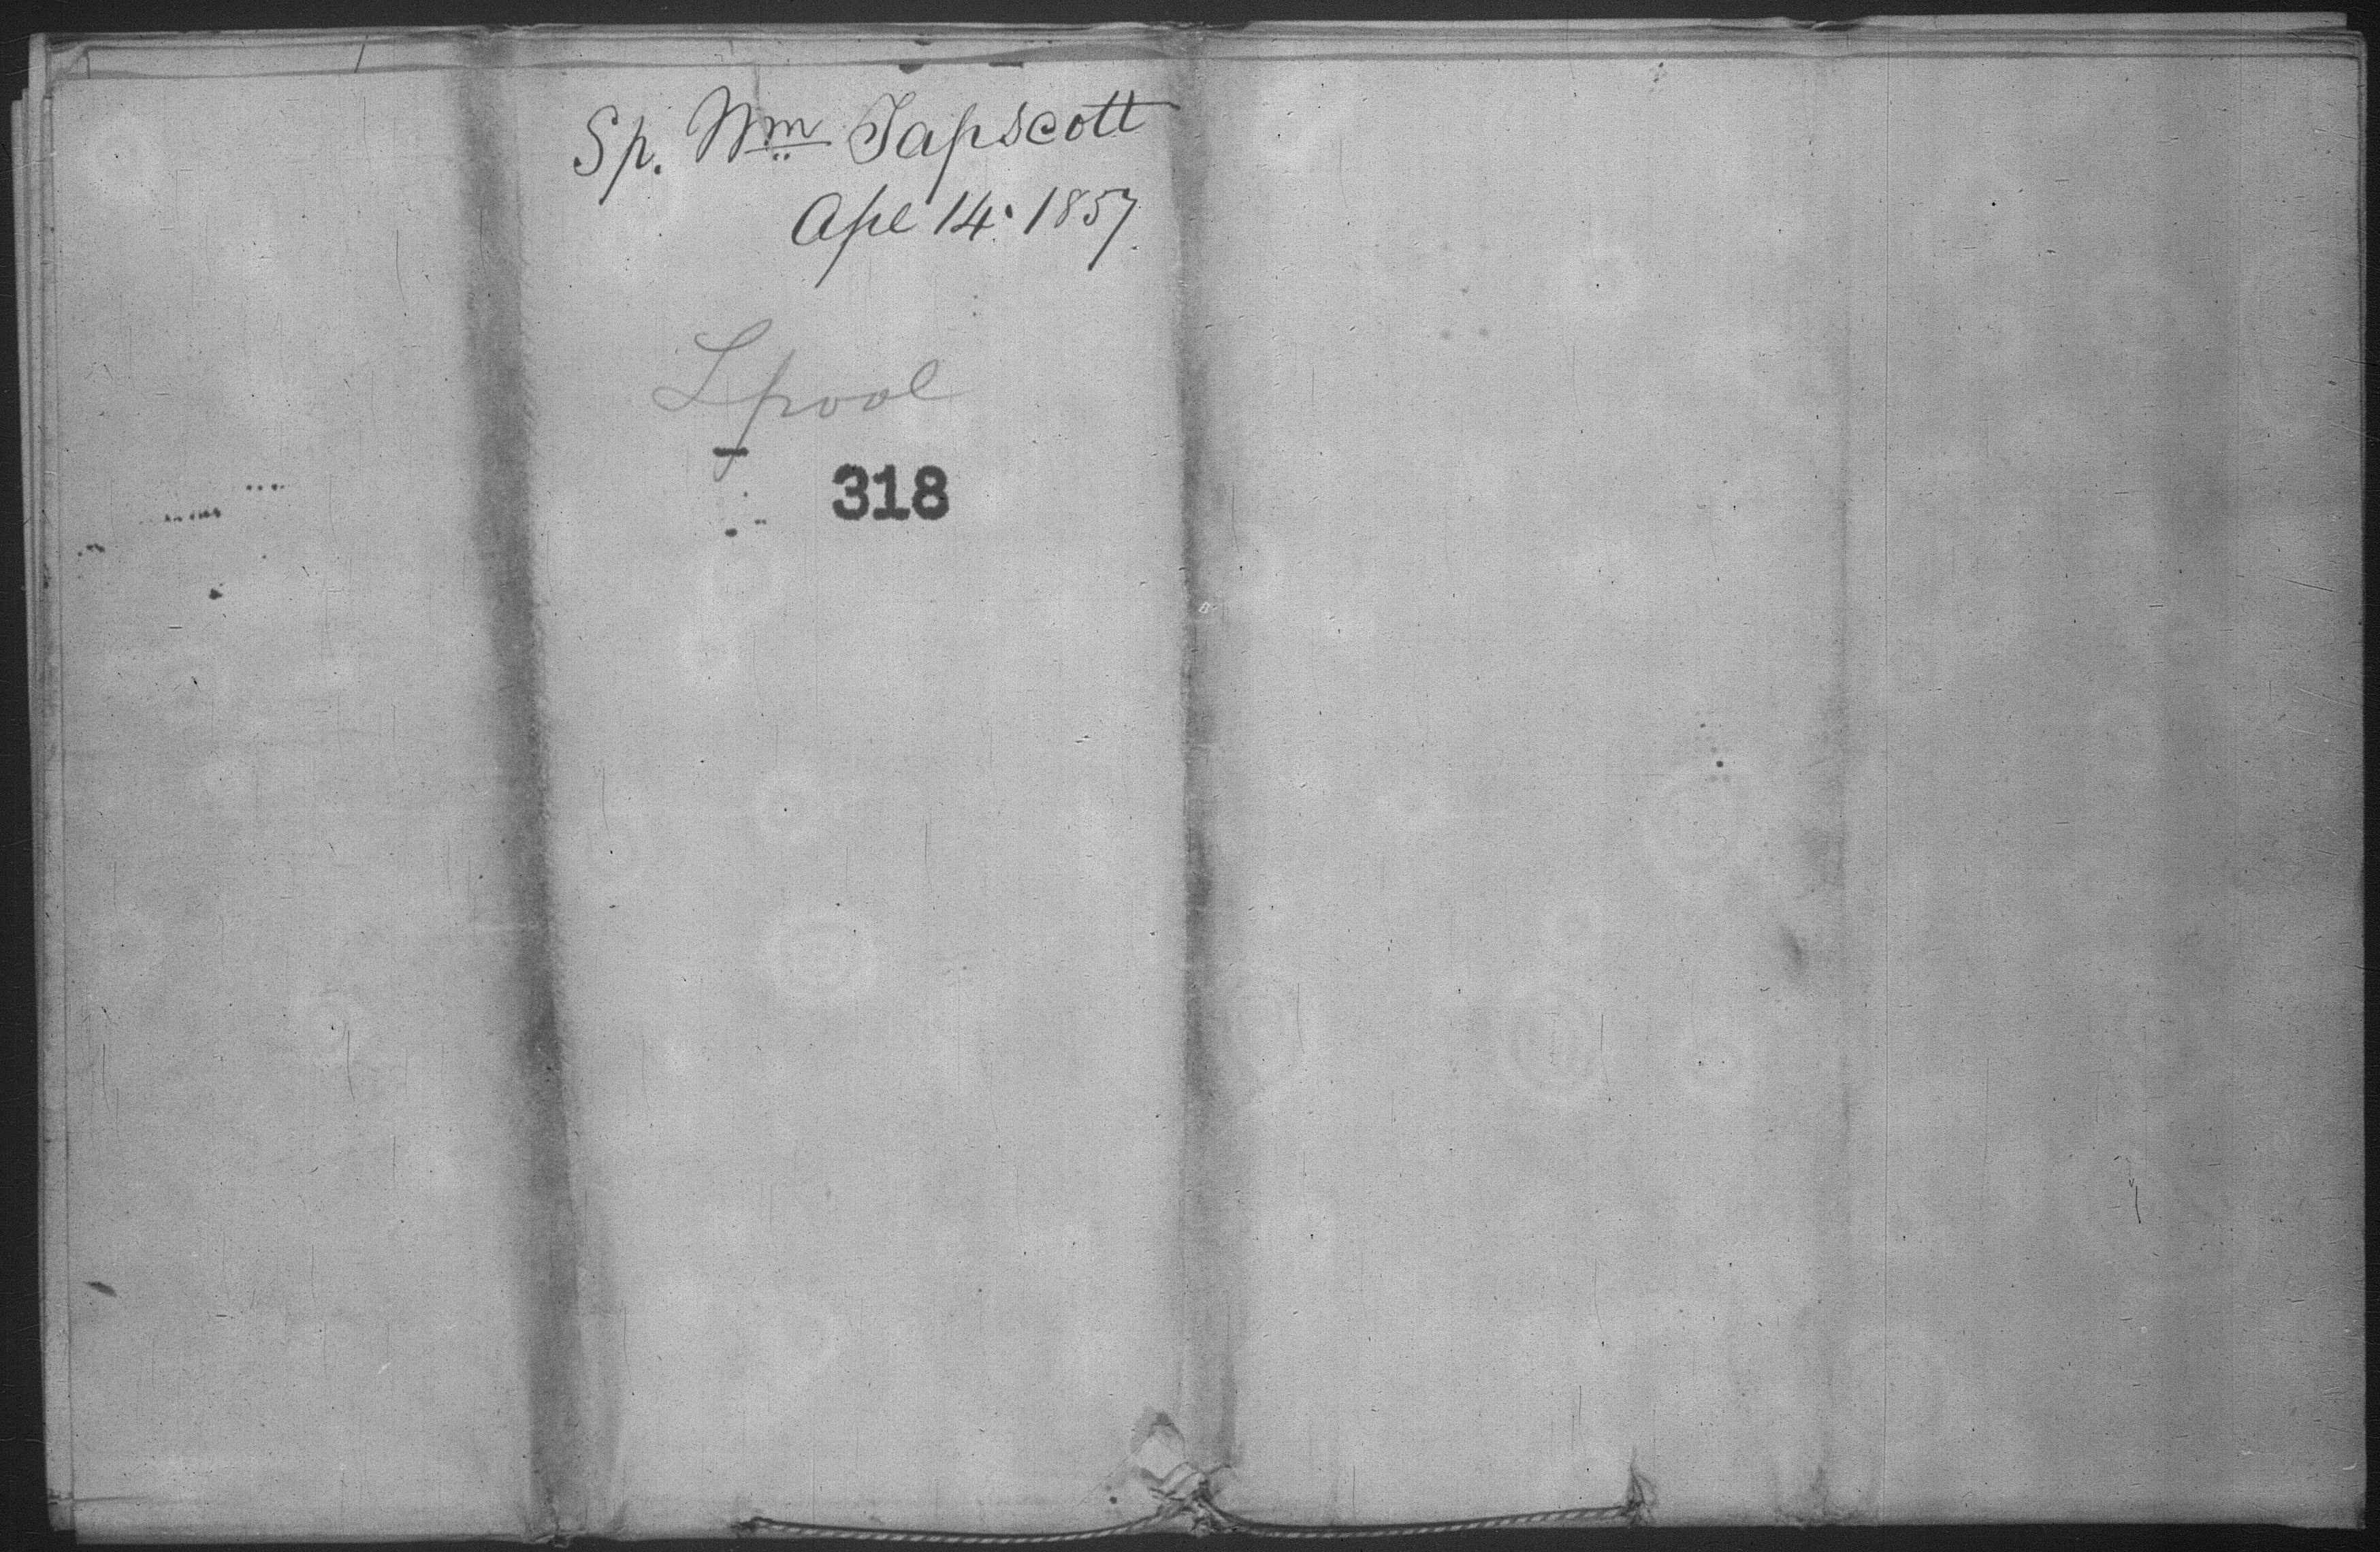 Sp. Wm Tapscott
Apl 14. 1857.
Lpool
318